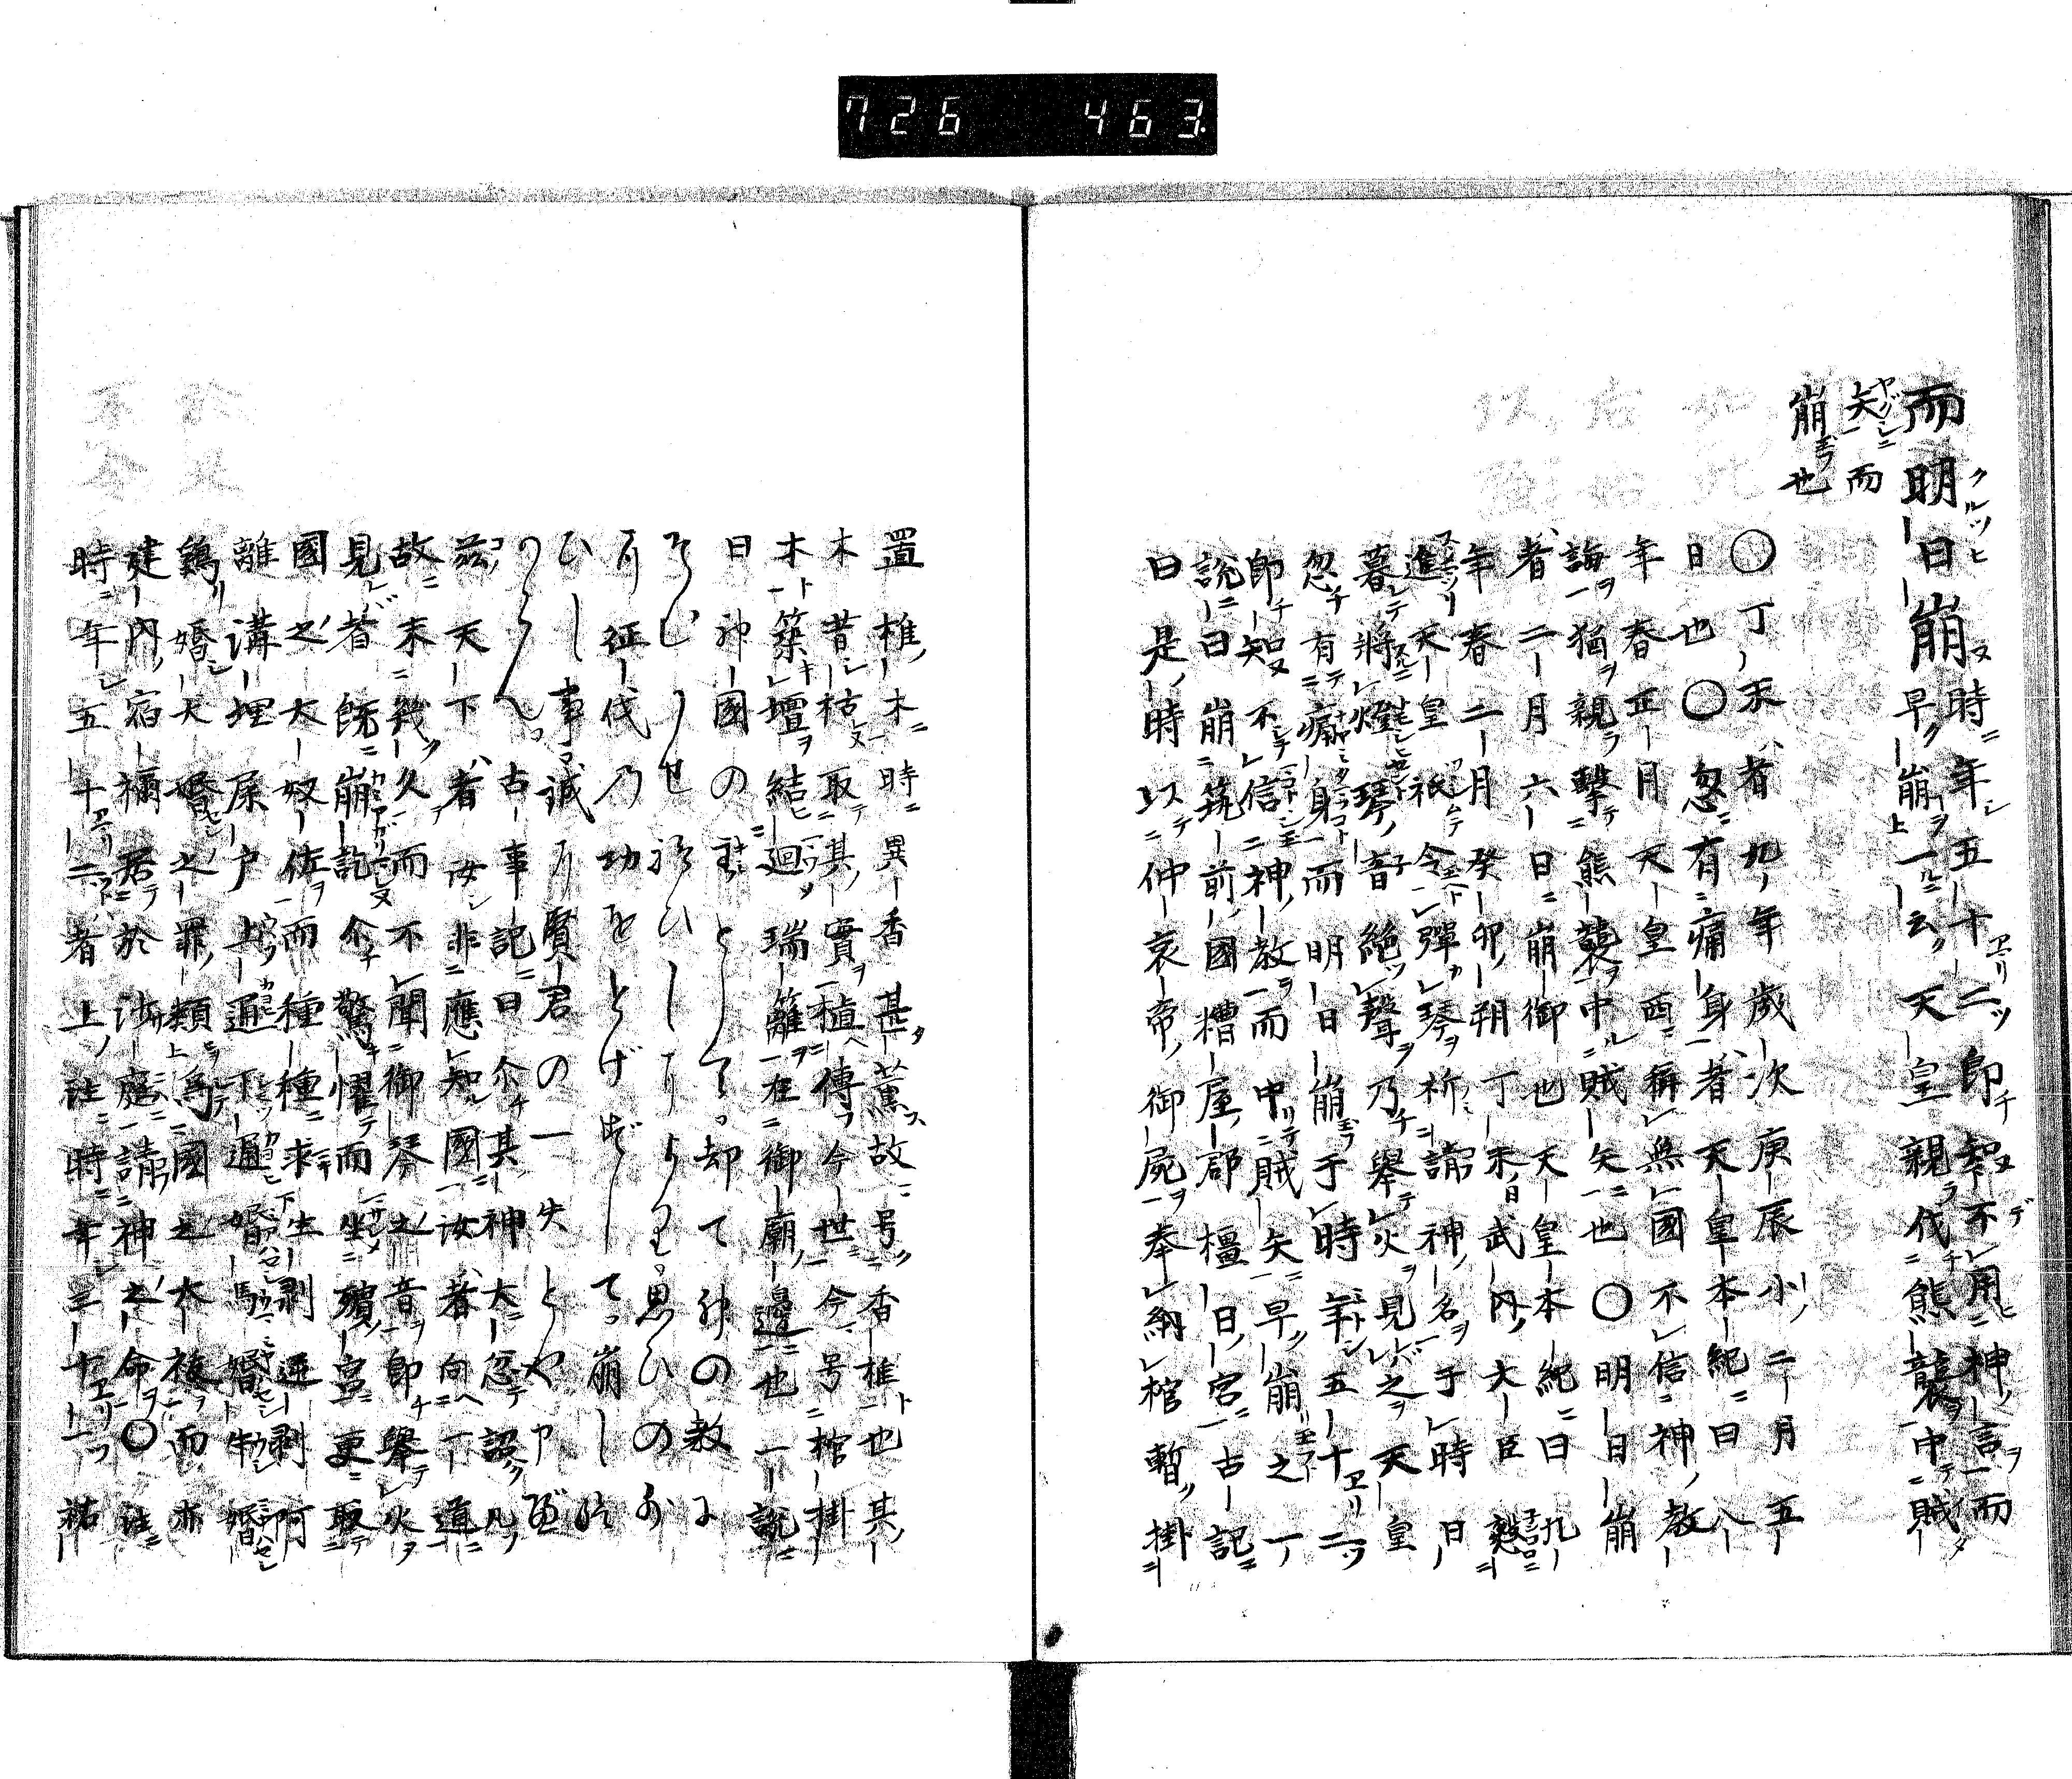 726 463.
而明日崩時年五十二即知不用神言而
早崩一云天皇親伐熊襲中賊
矢而
崩也
〇丁未者九年歳次庚辰小二月五
日也〇忽有痛身者天皇本紀曰八
年春正月天皇西稱無國不信神教
誨猶親擊熊襲中賊矢也〇明日崩
者二月六日崩御也天皇本紀曰九
年春二月癸卯朔丁未武内大臣慇
進天皇祇令彈琴祈請神名于時日
暮將燈琴音絶聲乃擧火見之天皇
忽有痛身而明日崩于時年五十二
即知不信神教而中賊矢早崩之一
說曰崩筑前國糟屋郡橿日宮古記
曰是時以仲哀帝御屍奉納棺暫掛
置椎木時異香甚薫故号香椎也其
木昔枯取其實植傳今世今号棺掛
木築壇結廻瑞籬在御廟邊也一說
日神國の主として却て神の教に
そむ
り征伐乃功をとげずして崩し
ひし事誠り賢君の一失とや
古事記曰尒其神大忽詔凡
茲天下者汝非應知國汝者向一道
故未幾久而不聞御琴之音即擧火
見者既崩訖尒驚懼而坐殯宮更取
國之大奴佐而種種求生剥逆剥阿
離溝埋屎戸上通下通婚馬婚牛婚
鶏婚犬婚之罪類為國之大祓而亦
建内宿禰居於沙庭請神之命〇註
時年五十二者上註時年三十一祐